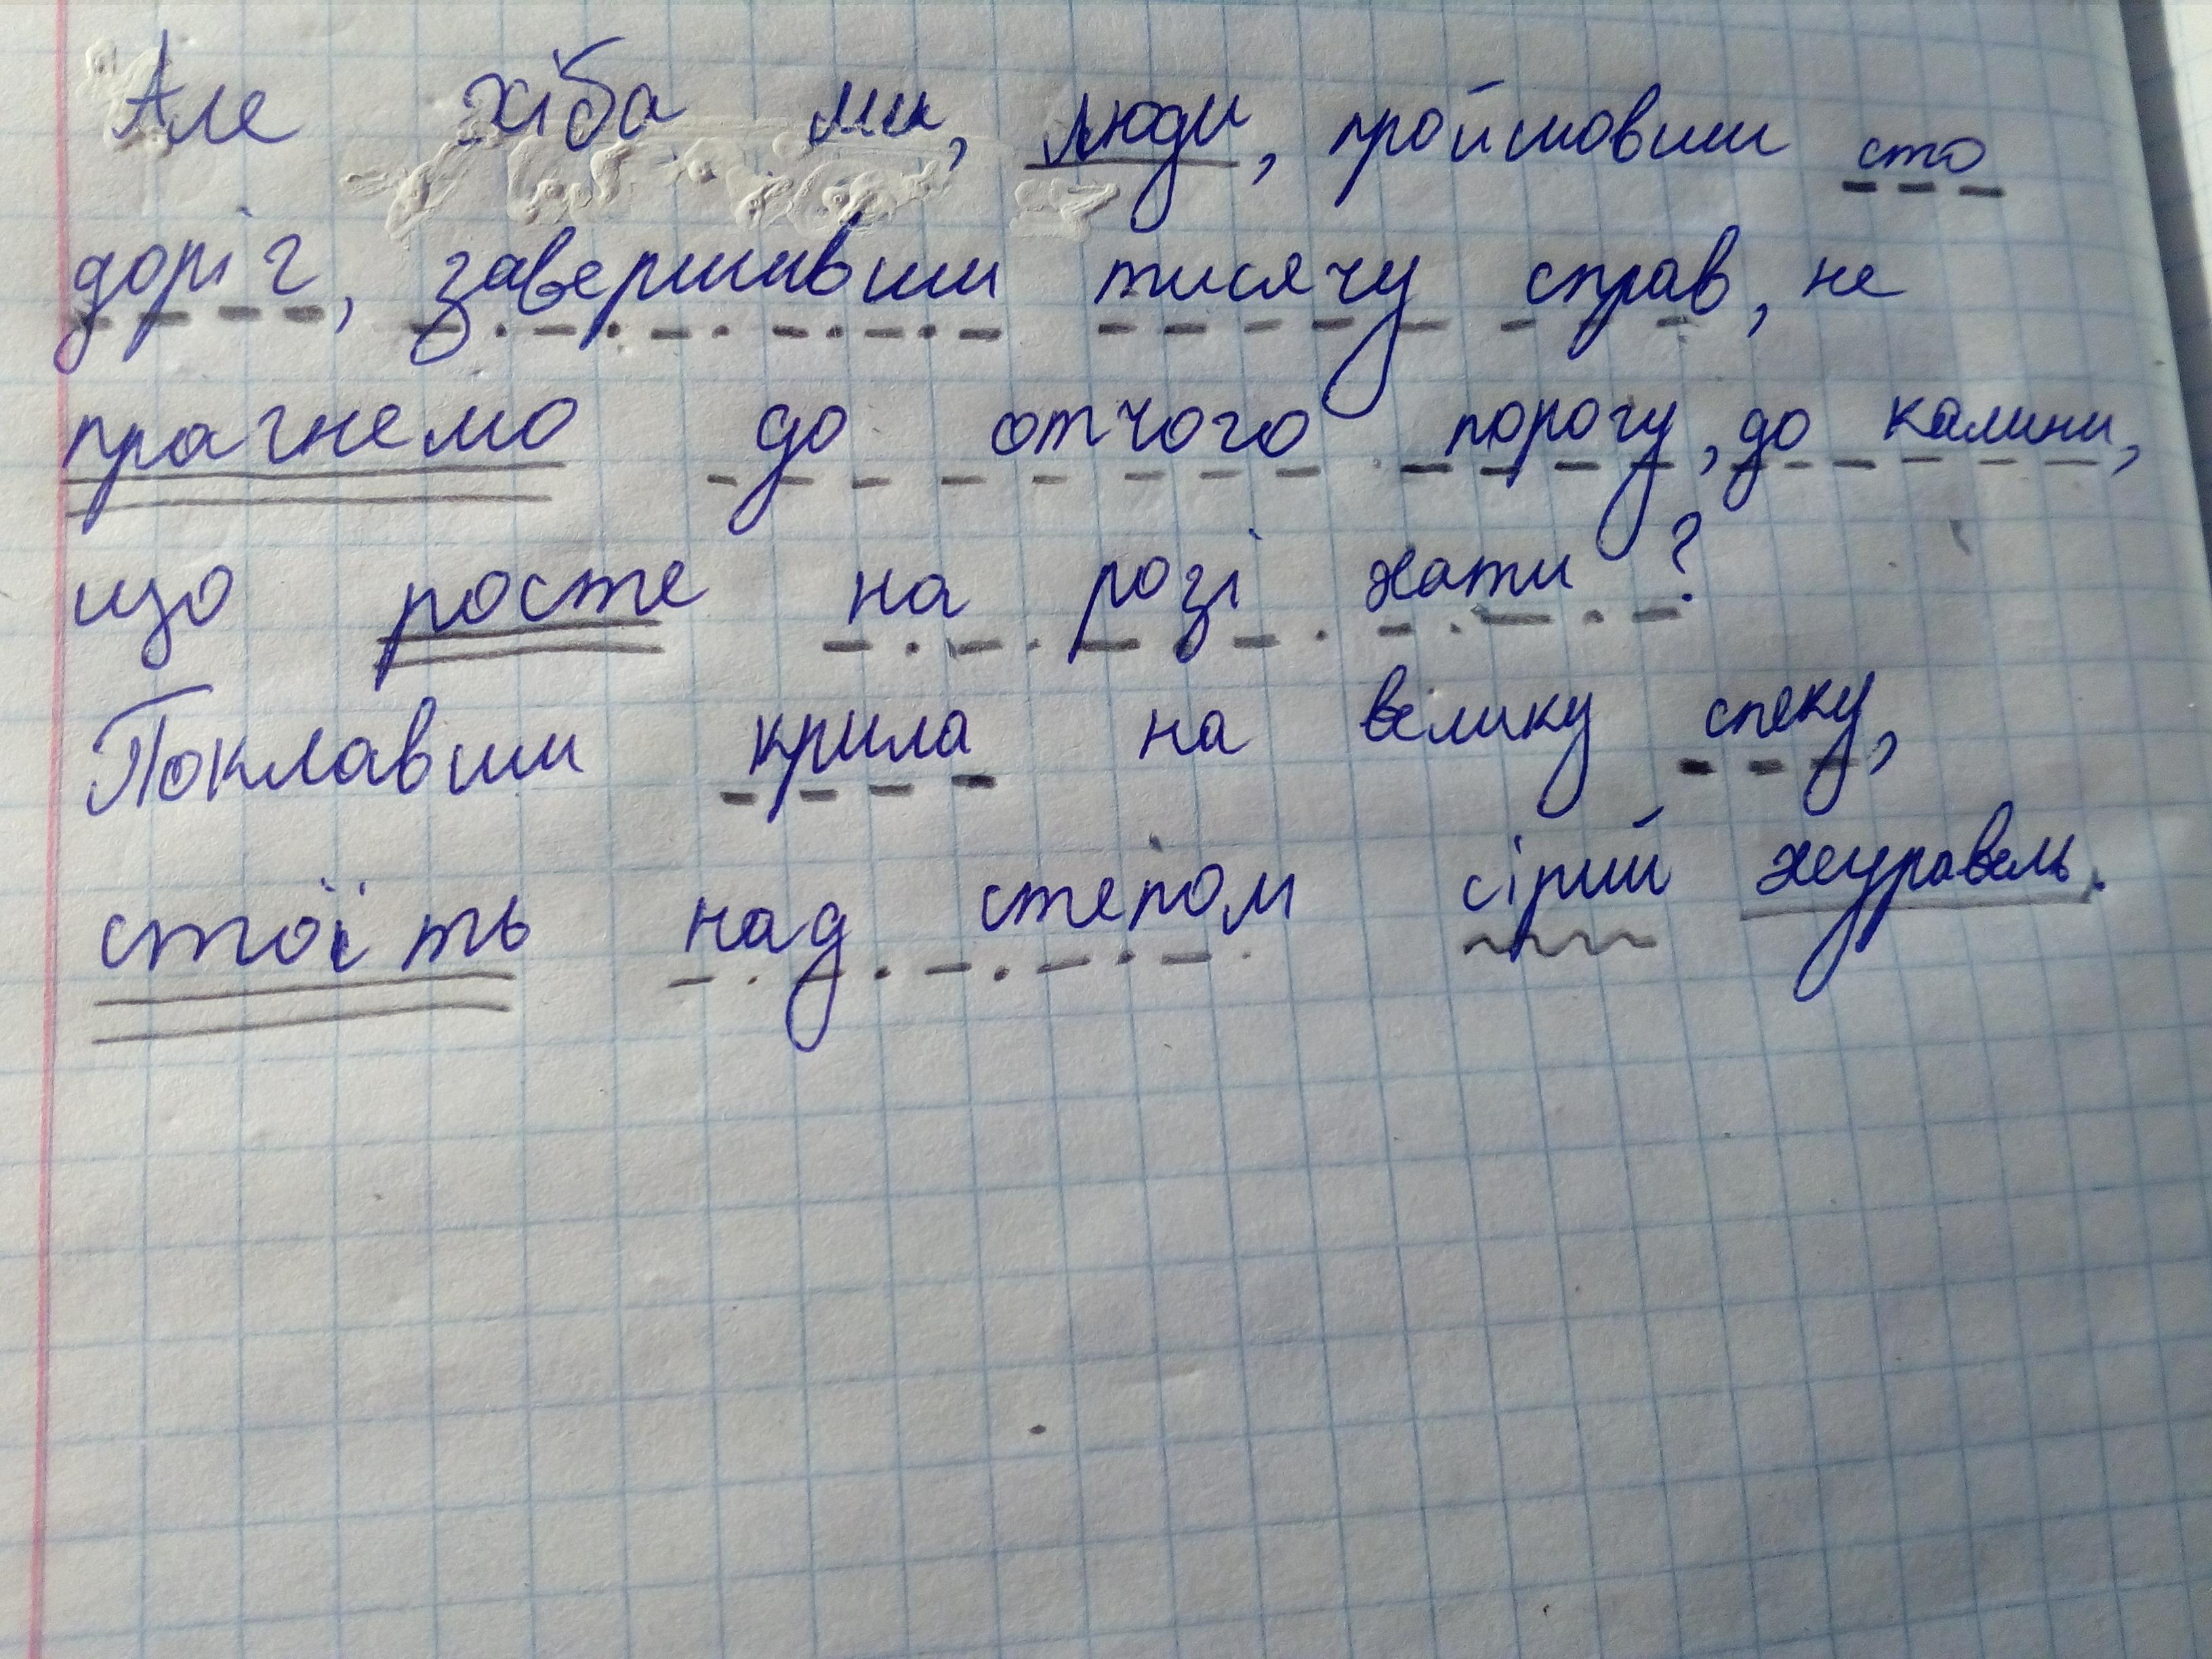 Але хіба ми, люди, пройшовши сто
доріг, завершивши тисячу справ, не
прагнемо до отчого порогу, до калини,
що росте на розі хати?
Поклавши крила на велику спеку,
стоїть над степом сірий журавель.